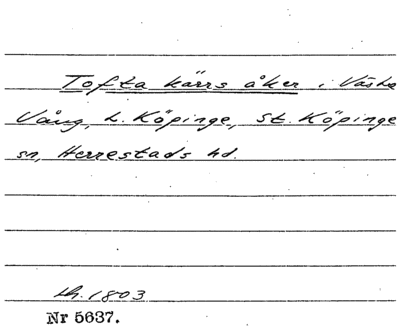 Tofta kärrs åker i Västra
Vång, L. Köpinge, St. Köpinge
sn, Herrestads hd.
lh. 1803
Nr 5637.